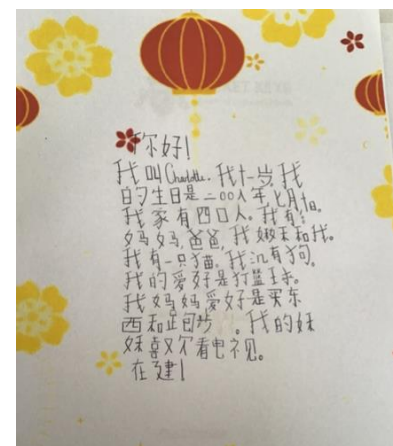 你好!
我叫Charlotte. 我十一岁, 我
的生日是二00八年,七月十日。
我家有四口人。我有:
妈妈, 爸爸, 我妹妹和我。
我有一只猫。我没有狗。
我的爱好是打篮球。
我妈妈爱好是买东
西和跑步。我的妹
妹喜欢看电视。
在建!